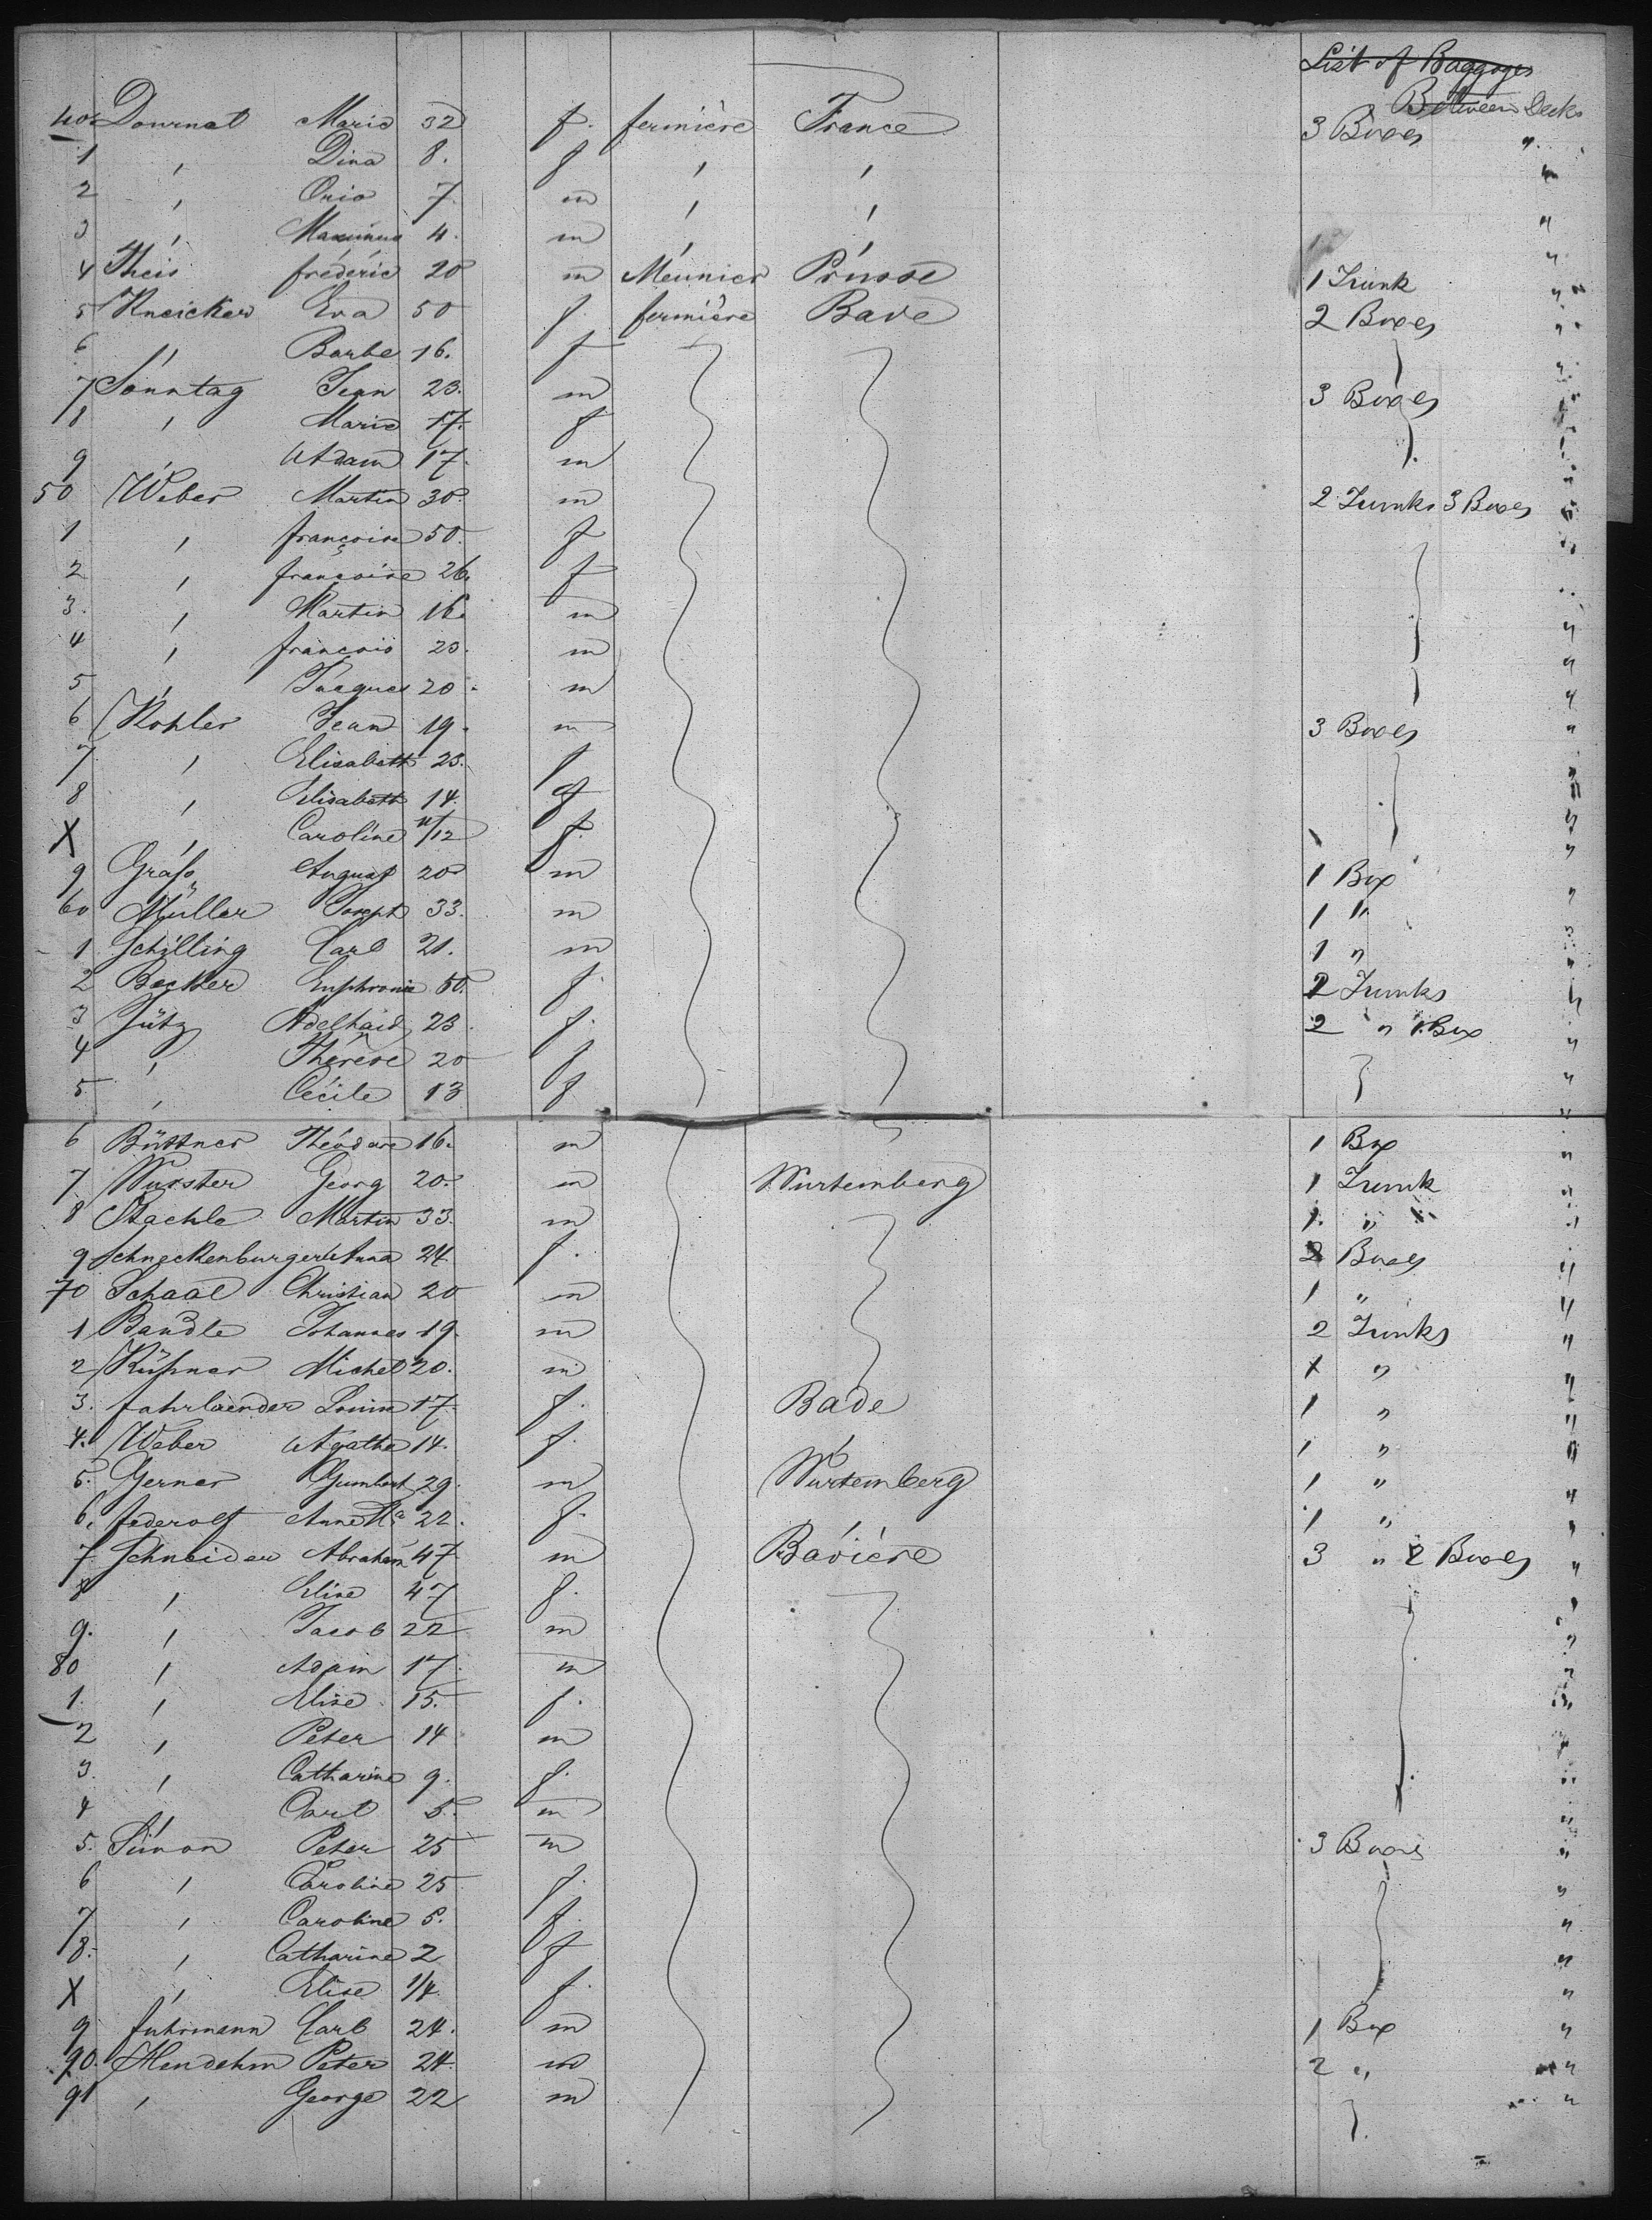 List of Baggages
Between Decks
40 Dournat Marie 32 f. fermière France 3 Boxes "
1 , Dina 8. f , , "
2 , 7. m , , "
3 , 4. m , , "
4 Theis frédéric 20 m Meunier Prusse 1 Trunk "
5 Kneicker Eva 50 f. fermière Bade 2 Boxes "
6 , Barbe 16. f "
7 Sonntag Jean 23. m 3 Boxes "
8 , Marie 17. f "
9 , Adam 17. m "
50 Weber Martin 30. m 2 Trunks 3 Boxes "
1 , françoise 50. f "
2 , françoise 26. f "
3. , Martin 16. m "
4 , françois 23. m "
5 , Jacques 20. m "
6 Kohler Jean 19. m 3 Boxes "
7 , Elisabeth 23. f "
8 , Elisabeth 14. f "
X , Caroline 11/12 f. "
9 August 20 m 1 Box "
60 Müller Joseph 33. m 1 " "
1 Schilling Carl 21. m 1 " "
2 Becker 50. f. Trunks "
3 Jütz Adelhaid 23. f. 2 " 1 Box "
4 , Thérèse 20 f "
5 , Cécile 13 f "
6 Büttner Théodore 16. m 1 Box "
7. Wurster Georg 20. m Wurtemberg 1 Trunk "
8 Staehle Martin 33. m 1. " "
9 Schneckenburger Anna 24. f. 2 Boxes "
70 Schaal Christian 20 m 1 " "
1 Bandle Johannes 19. m 2 Trunks "
2 Michel 20. m 1 " "
3. fahrlaender Louise 17. f. Bade 1 " "
4. Weber Agathe 14. f. 1 " "
5. Gerner 29. m Wurtemberg 1 " "
6. federolf Anne Ma 22. f. 1 " "
7 Schneider Abraham 47 m Bavière 3 " 2 Boxes "
8 , Elise 47 f. "
9. , Jacob 22 m "
80 , Adam 17. m "
1. , Elise 15. f. "
2 , Peter 14 m "
3. , Catharine 9. f. "
4 , Carl 5. m "
5. Simon Peter 25 m 3 Boxes "
6 , Caroline 25 f. "
7 , Caroline 5. f. "
8. , Catharine 2 f "
X , Elise 1/4 f. "
9 fuhrmann Carl 24. m 1 Box "
90. Peter 24. m 2 " "
91 , George 22 m "